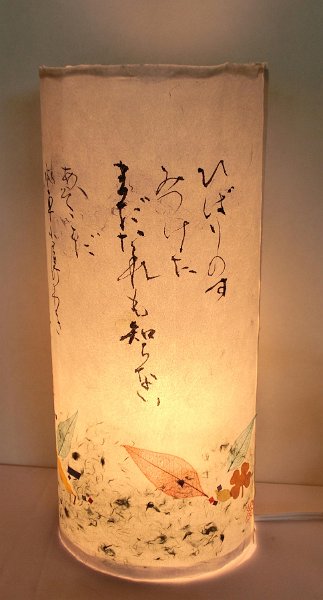 ひばりのす
みつけた
まだたれも知らない
あそこだ